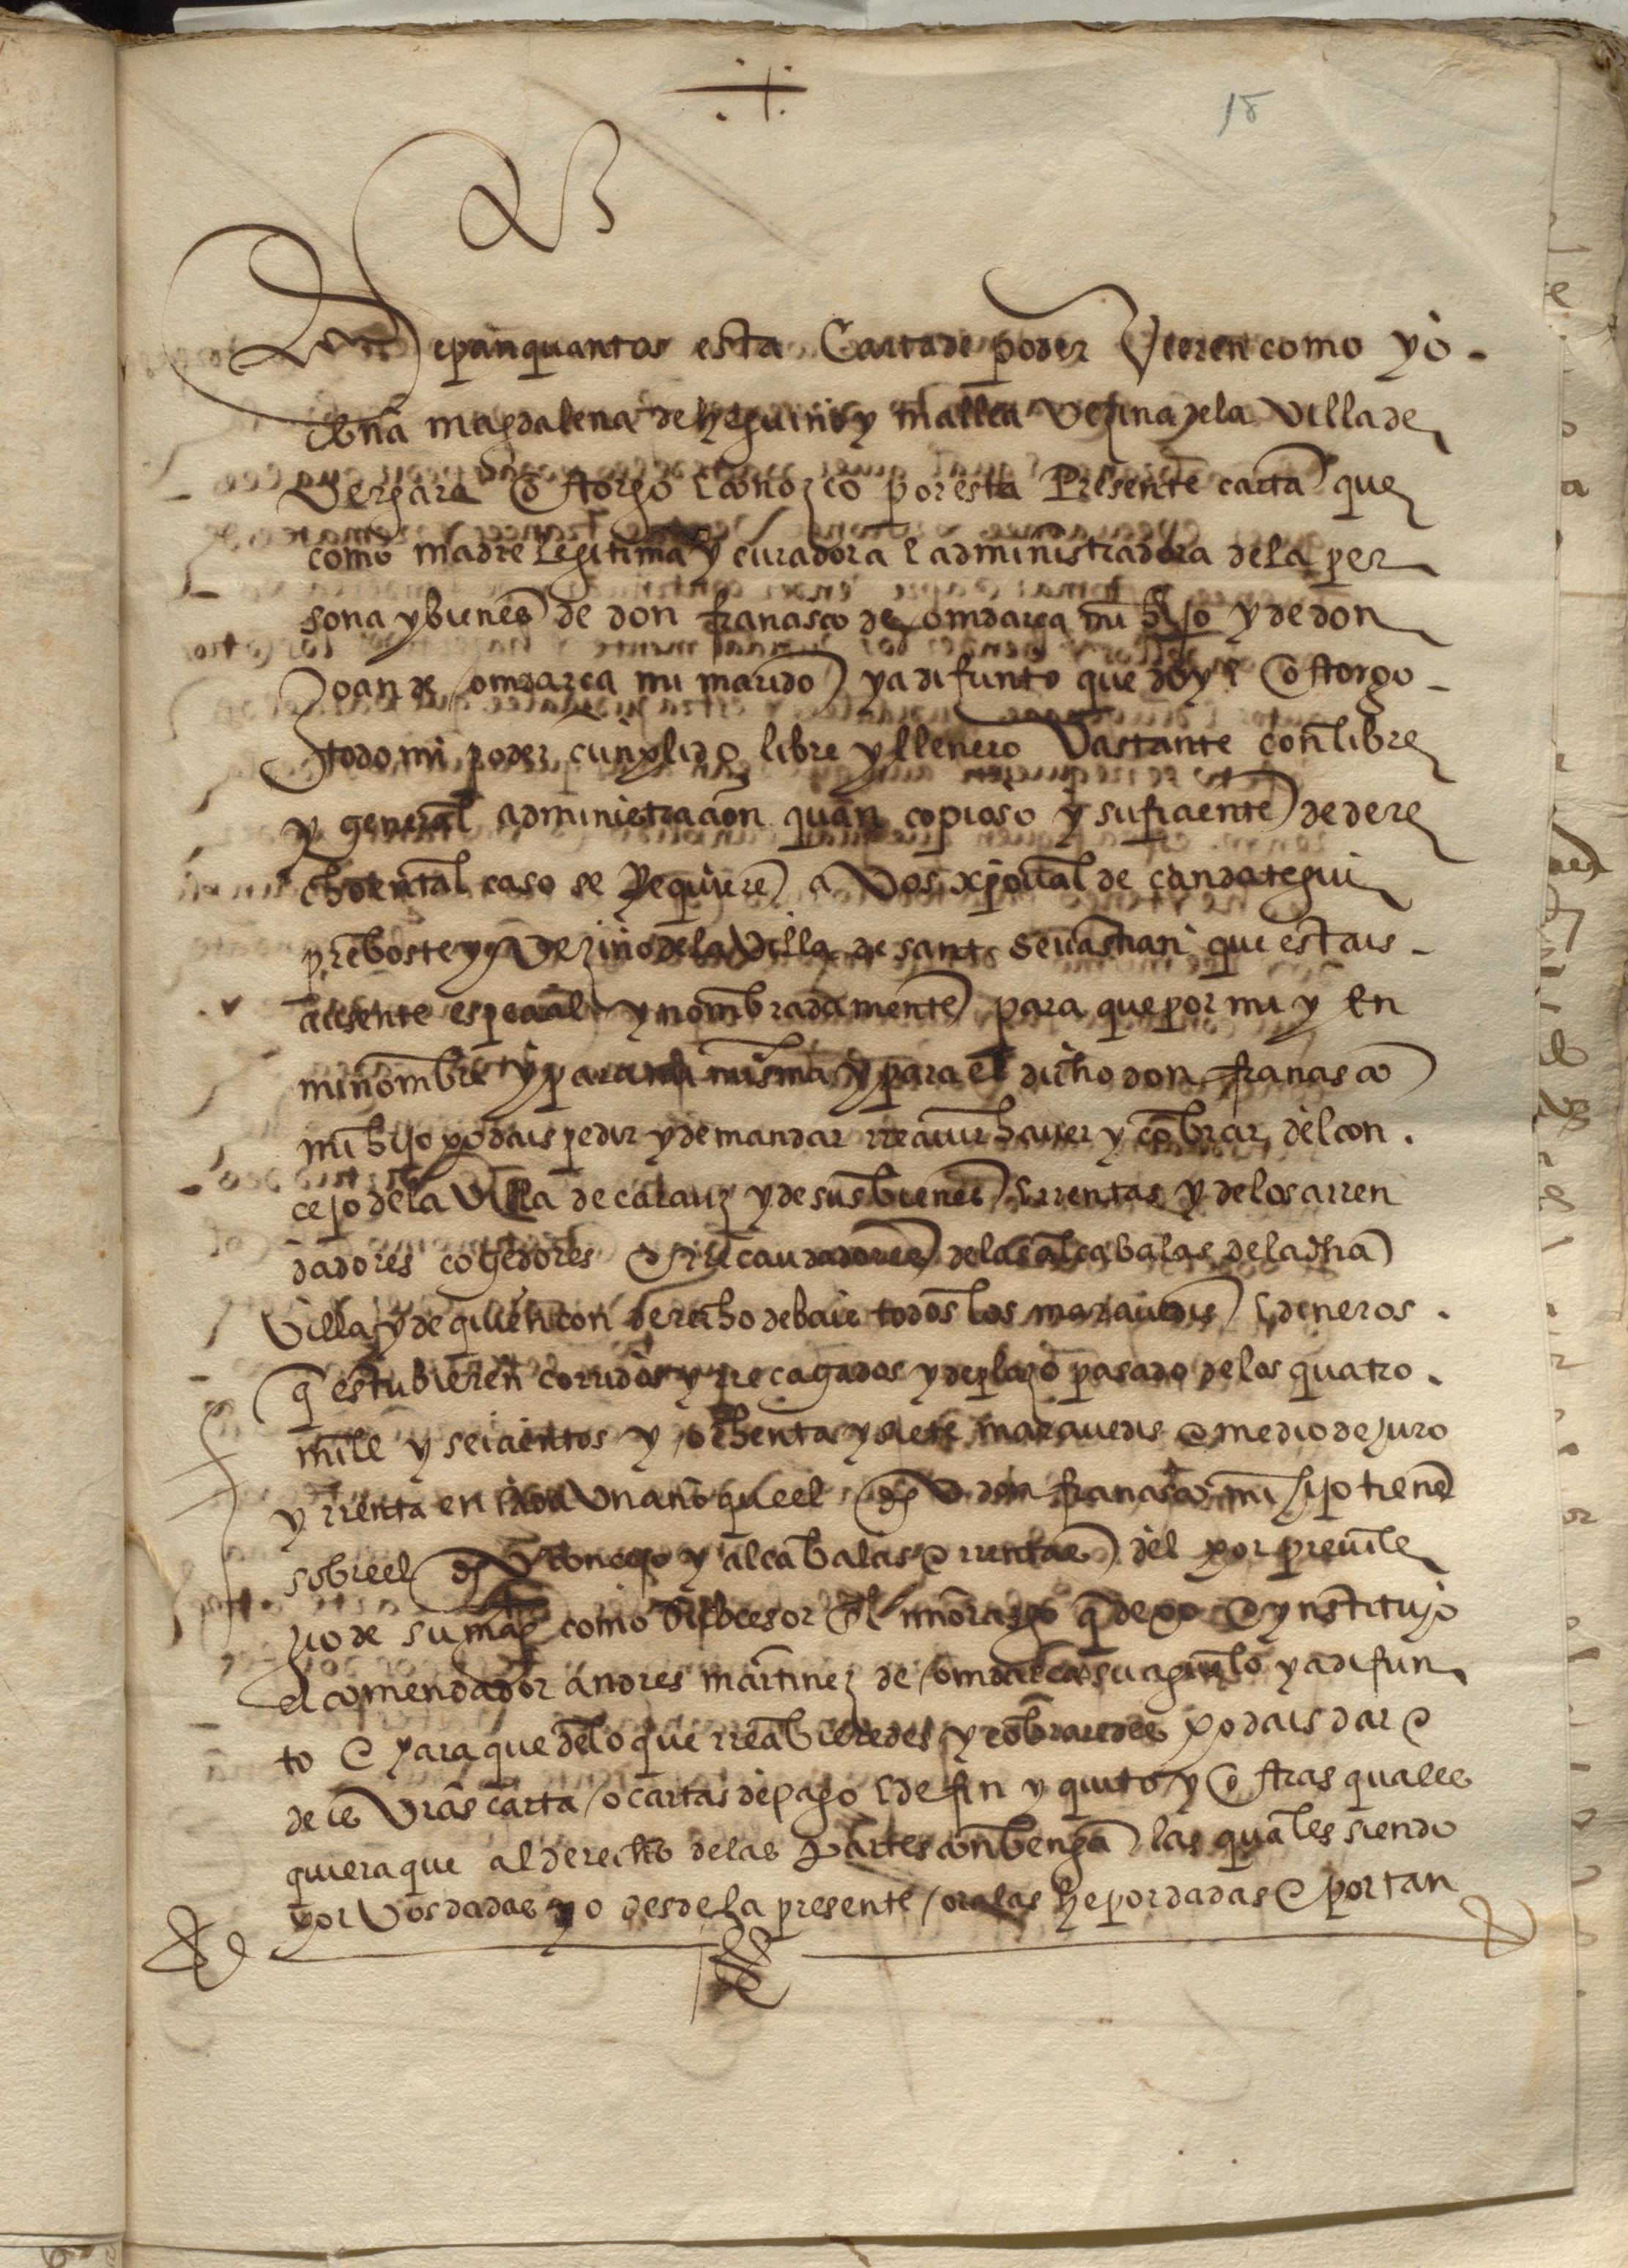 18
Sepan quantos esta Carta de poder Vieren como yo
doña magdalena de yrguin y mallea vezina de la Villa de
Vergara otorgo e conozco por esta Presente carta que
como madre legitima y curadora e administradora de la per
sona y bienes de don franco de çomdarça mi hijo y de don
Joan de çomdarça mi marido ya difunto que doy e otorgo
todo mi poder cunplido libre y llenero Vastante con libre
y general administraçion quan copioso y sufiçiente de dere
cho en tal caso se Requiere a Vos xpoual de
preboste y Vezino de la Villa de sant Seuastian que estais
absente espeçial y nombradamente para que por mi y en
mi nombre y para mi misma y para el dicho don françisco
mi hijo podais pedir y demandar rreçiuir hauer y cobrar del con
cejo de la Villa de carauz y de sus bienes e rrentas y de los arren
dadores cogedores e rrecaudadores de las alcabalas de la dha
Villa y de quien con derecho debais todos los marauedis e dineros
q estubieren corridos y rreçagados y de plazo pasado de los quatro
mill y seiçientos y ochenta y siete marauedis e medio de juro
y rrenta en cada Un año que el dho don françisco mi hijo tiene
sobre el dho conçejo y alcabalas e rrentas del por preuile
jio de su magd como subcesor del mayorasgo q dexo e ynstituyo
el comendador andres martinez de çomdarça su aguelo ya difun
to e para que de lo que rreçibieredes y cobraredes podais dar e
deis Vras carta o cartas de pago e de fin y quito y otras quales
quiera que al derecho de las partes conbenga las quales siendo
por Vos dadas yo desde la presente ora las he por dadas e por tan